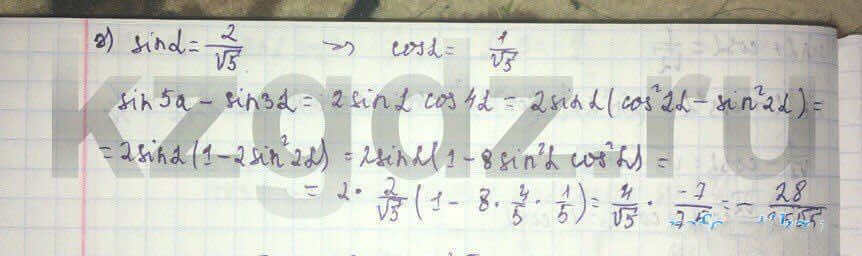 г) sinα = 2/√5 → cosα = 1/√5
sin5α - sin3α = 2sinα cos4α = 2sinα(cos²2α - sin²2α) =
= 2sinα(1 - 2sin²2α) = 2sinα(1 - 8sin²α cos²α) =
= 2 · 2/√5 (1 - 8 · 4/5 · 1/5) = 4/√5 · -7/25 = - 28/25√5
kzgdz.ru